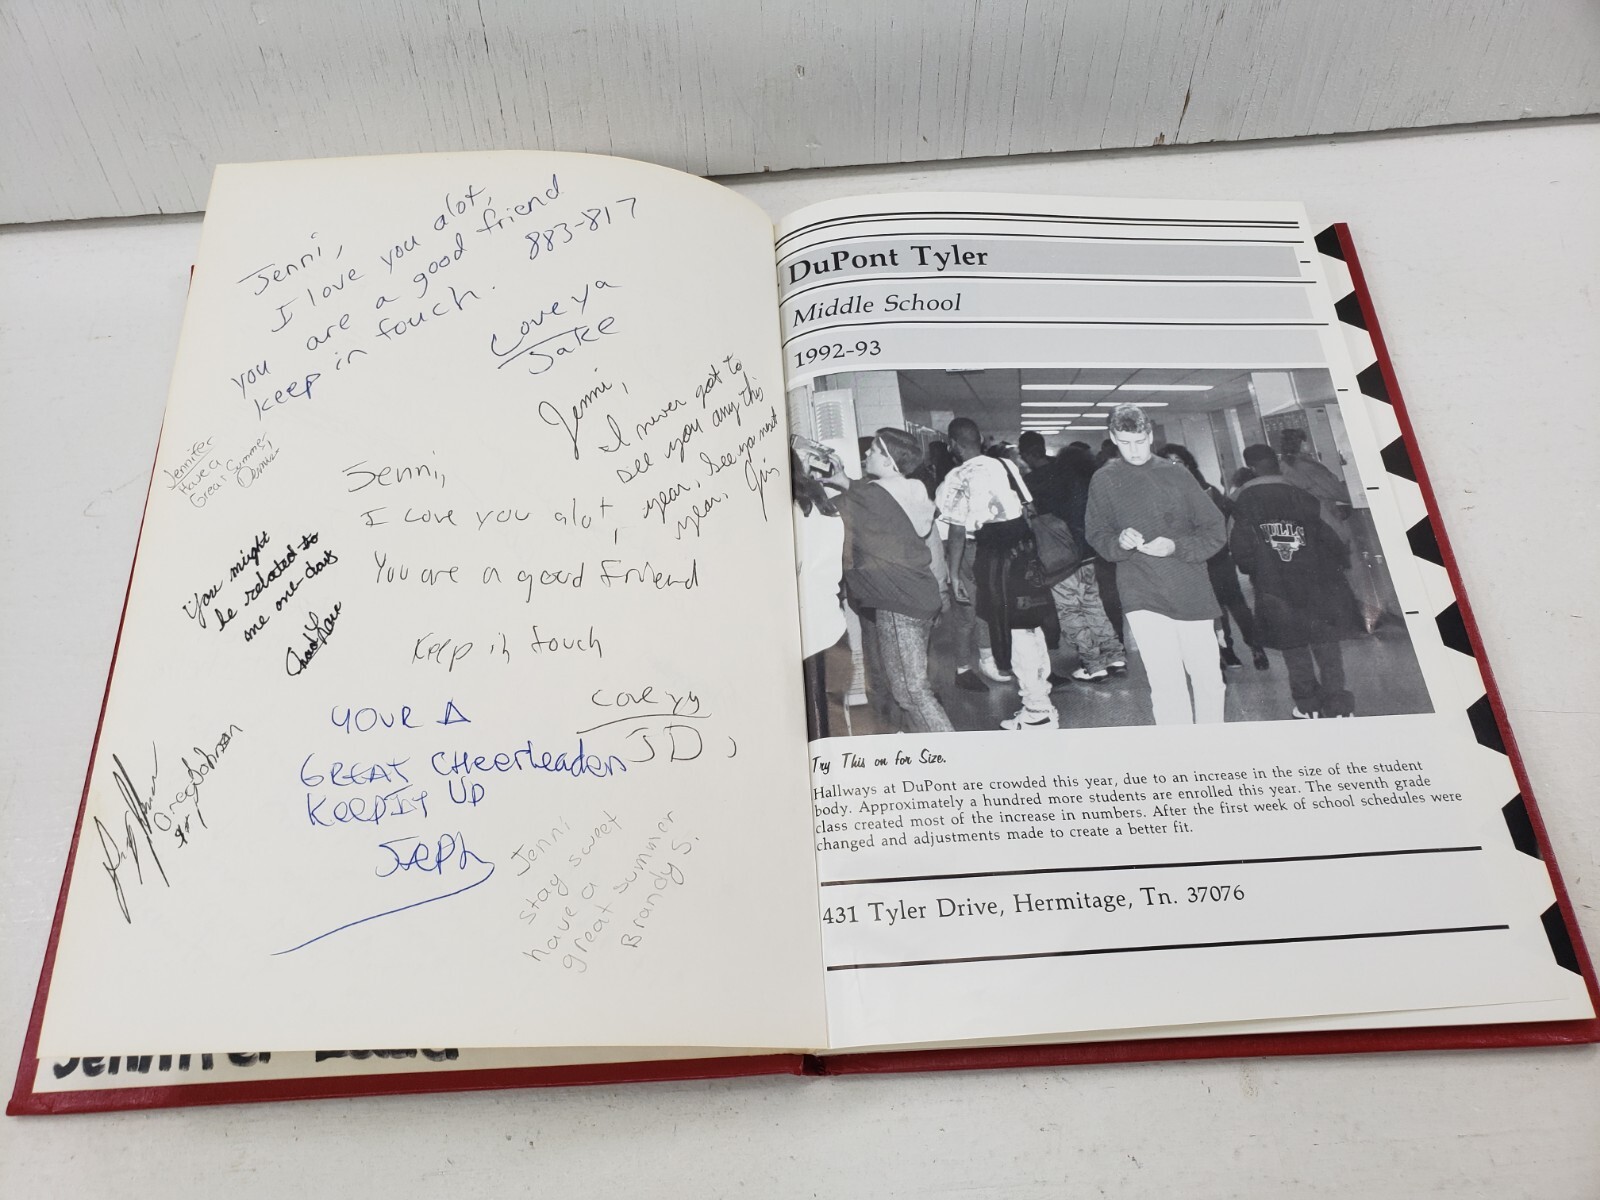 Jenni,
I love you alot,
you are a good friend
keep in touch.
883-817
Love ya
Jake
Jenni,
I never got to
see you any this
year, See ya next
year,
Jennifer
Have a
Great Summer
Jenni,
I love you alot,
You are a good friend
Keep in touch
Love ya
JD,
You might
be related to
me one day
YOUR A
GREAT CHeerLeader
KEEP IT UP
Steph
Johnson
Jenni
Stay sweet
have a
great summer
Brandy S.
Jennifer
DuPont Tyler
Middle School
1992-93
BULLS
Try This on for Size.
Hallways at DuPont are crowded this year, due to an increase in the size of the student
body. Approximately a hundred more students are enrolled this year. The seventh grade
class created most of the increase in numbers. After the first week of school schedules were
changed and adjustments made to create a better fit.
431 Tyler Drive, Hermitage, Tn. 37076